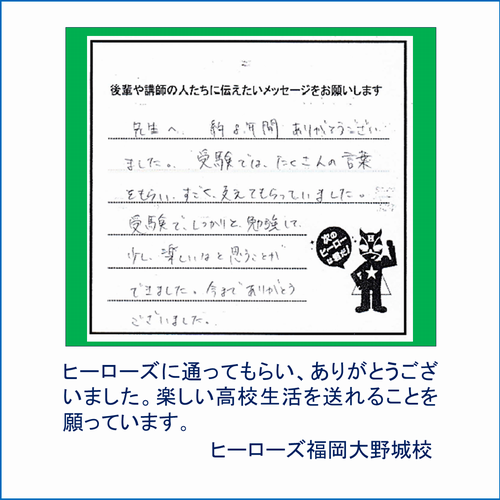 後輩や講師の人たちに伝えたいメッセージをお願いします
先生へ. 約2年間 ありがとうござい
ました。 受験では、たくさんの言葉
をもらい、すごく、支えてもらっていました。
受験で、しっかりと、勉強して、
少し、楽しいなと思うことが
できました。今までありがとう
ございました。
次の
ヒーロー
は君だ!
ヒーローズに通ってもらい、ありがとうござ
いました。楽しい高校生活を送れることを
願っています。
ヒーローズ福岡大野城校